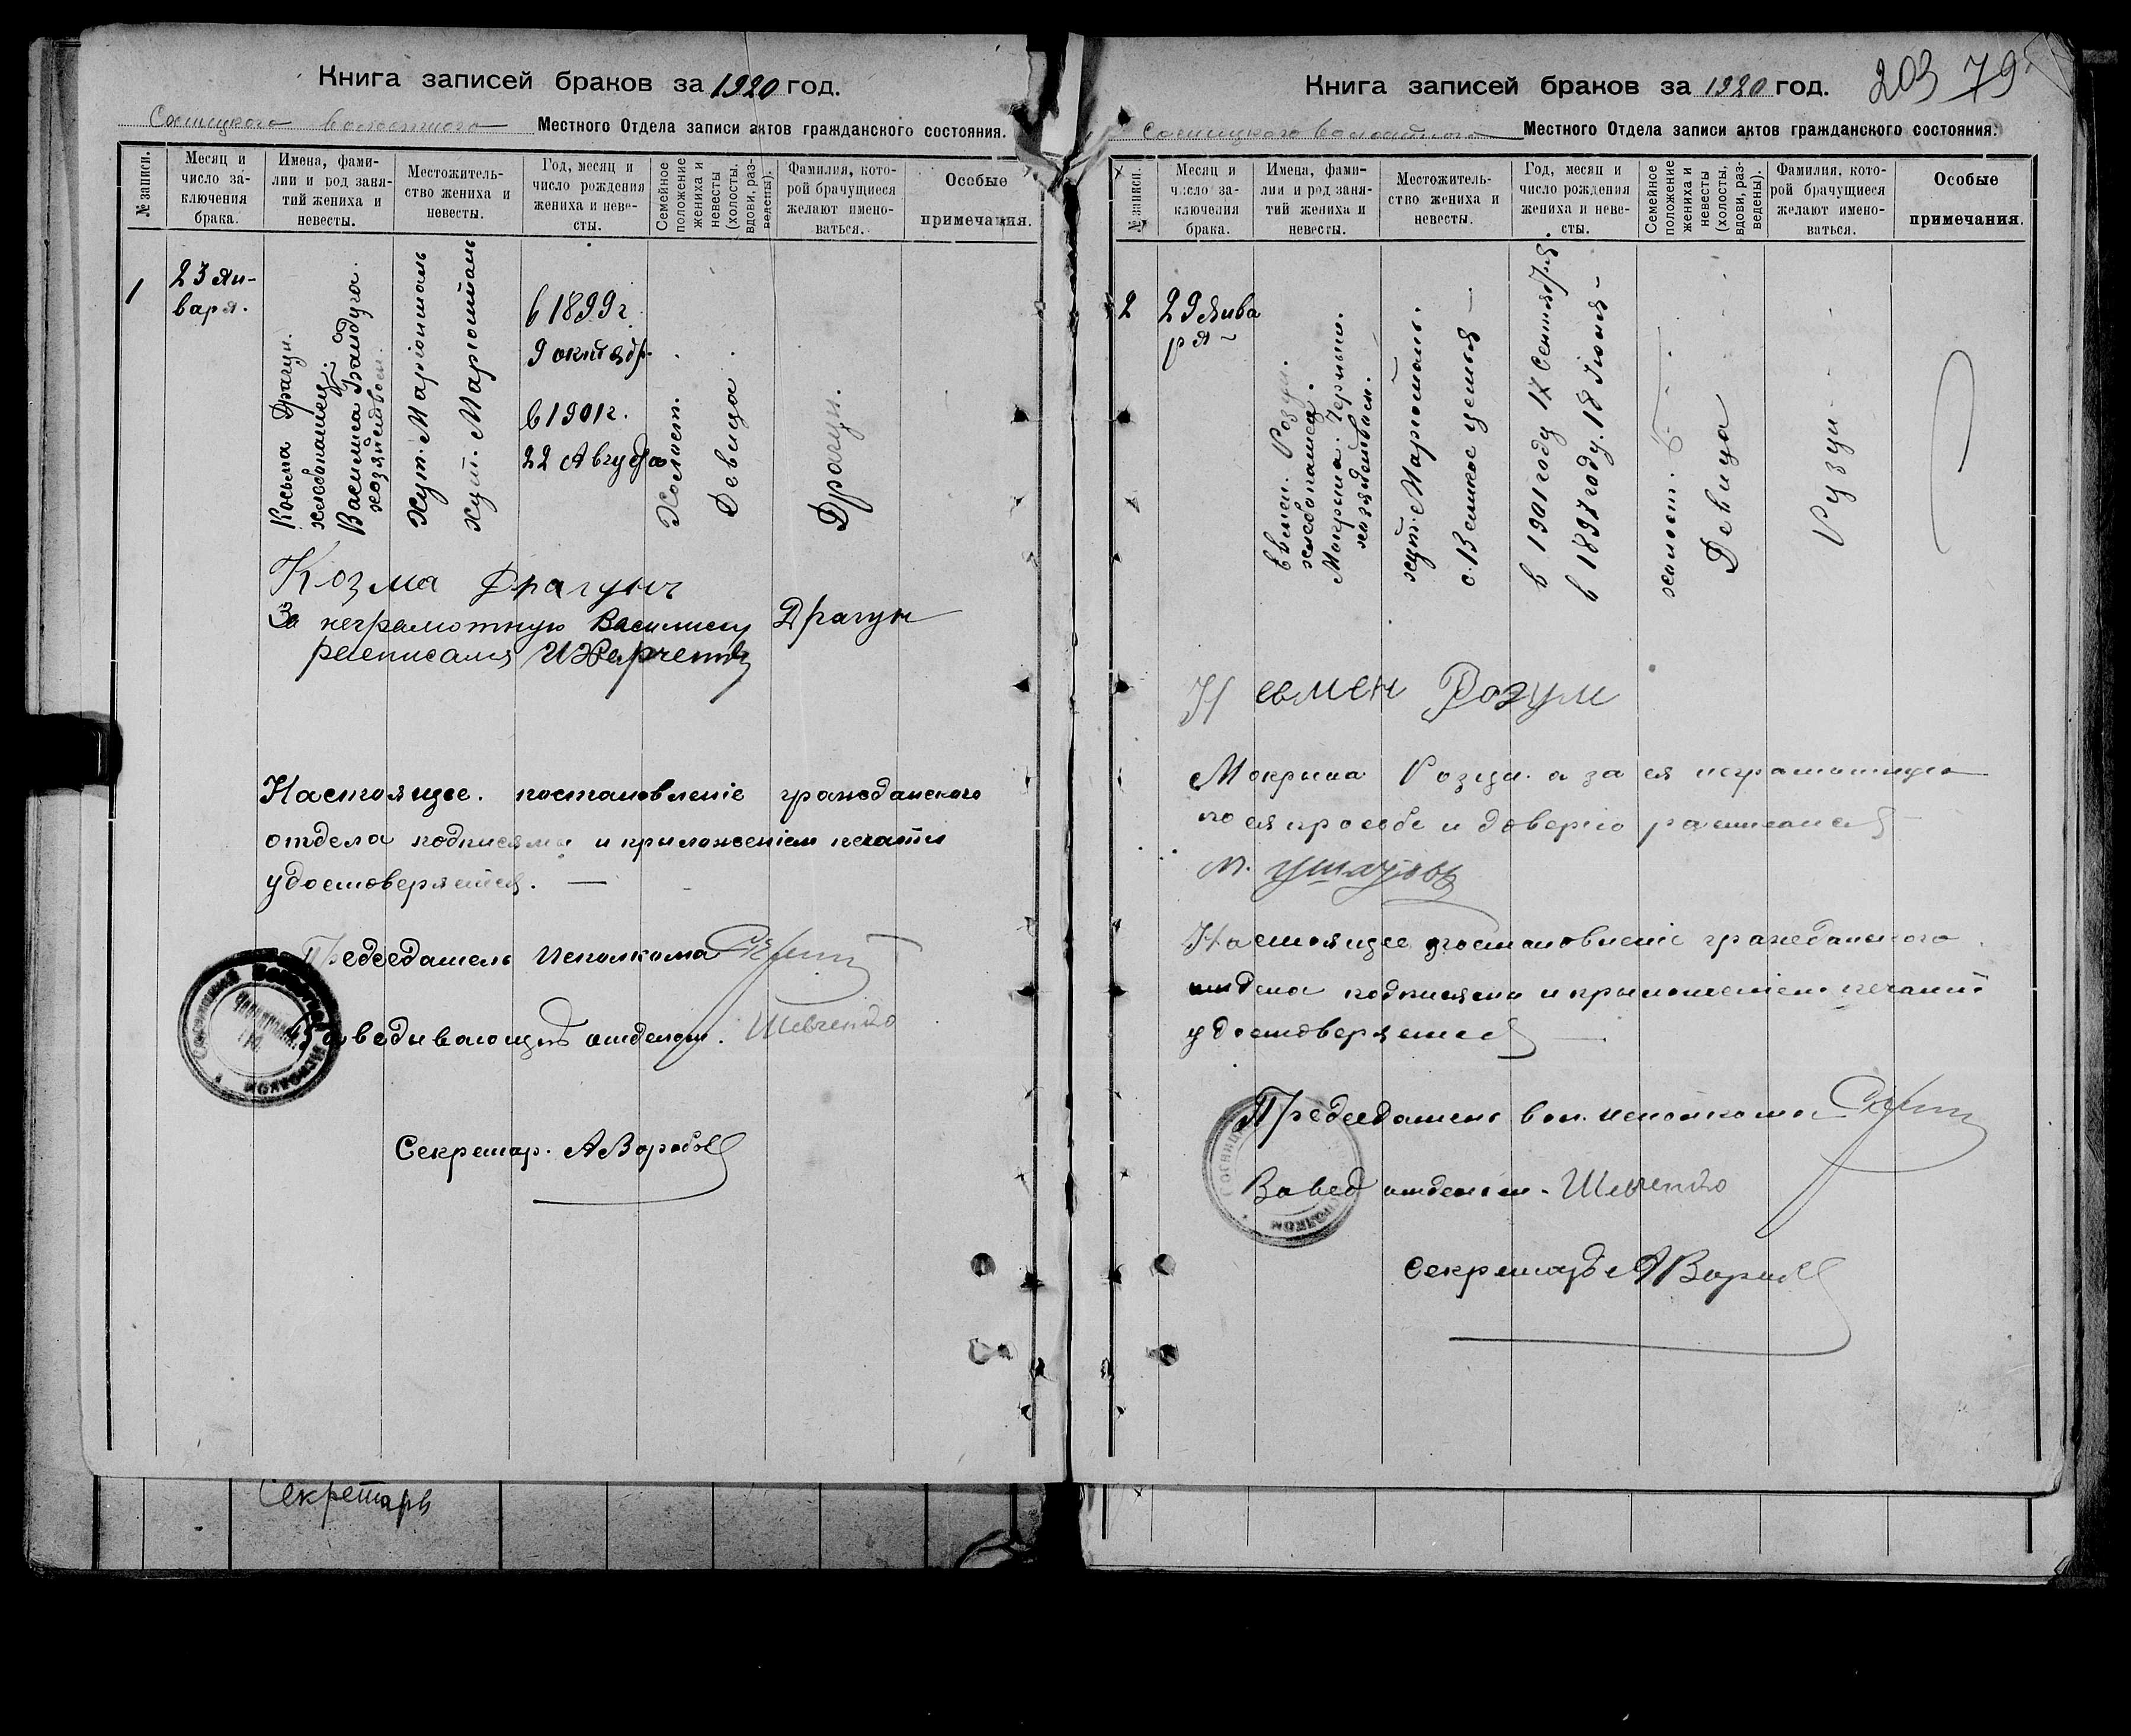 Книга записей браков за 1920 год.
Сосницкого волостного Местного Отдела записи актов гражданского состояния.
№ записи.
Месяц и число за-
ключения брака.
Имена, фами-
лии и род заня-
тий жениха и
невесты.
Местожитель-
ство жениха и
невесты.
Год, месяц и
число рождения
жениха и неве-
сты.
Семейное
положение
жениха и
невесты
(холосты,
вдови, раз-
ведены).
Фамилия, кото-
рой брачущиеся
желают имено-
ваться.
Особые
примечания.
1
23 Ян-
варя.
Косьма Драгун.
хлебопашец.
Василиса Бандура.
хозяйством.
Хут. Мариополь
хут. Мариополь
в 1899 г.
9 октябр.
в 1901 г.
22 Августа
Холост.
Девица
Драгун.
Козма Драгунъ
За неграмотную Василису Драгун
расписался И Харченко
Настоящее. постановленіе гражданского
отдела подписями и приложеніем печати
удостоверяется. —
Председатель Исполкома
Заведывающій отделом. Шевченко
Секретар. А Воробьев
Секретарь
Книга записей браков за 1920 год.
203 79
Сосницкого волостного Местного Отдела записи актов гражданского состояния.
№ записи.
Месяц и
число за-
ключения
брака.
Имена, фами-
лии и род заня-
тий жениха и
невесты.
Местожитель-
ство жениха и
невесты.
Год, месяц и
число рождения
жениха и неве-
сты.
Семейное
положение
жениха и
невесты
(холосты,
вдови, раз-
ведены).
Фамилия, кото-
рой брачущиеся
желают имено-
ваться.
Особые
примечания.
2
29 Янва
ря
Евмен. Розум.
хлебопашец.
Мокрина.
хозяйством.
хут. Мариополь.
с. Великое
в 1901 году 17 Сентября.
в 1897 году. 18 Июня
холост.
Девица
Розум
Н евмен Розум
Мокрина Розум. а за ея неграмотную
по ея просьбе и доверію расписался
М.
Настоящее постановленіе гражданского
отдела подписями и приложеніем печати
удостоверяется —
Председатель вол. исполкома
Завед отделом. Шевченко
Секретарь А Воробьев